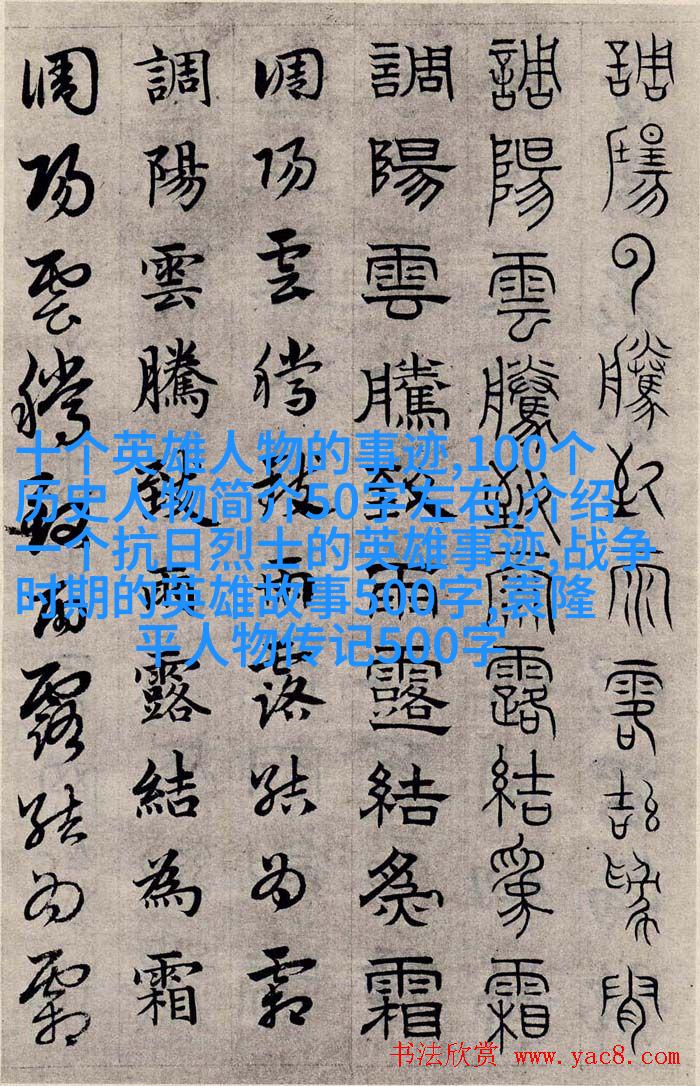 調陽雲騰致雨露結為霜
調陽雲騰致雨露結為霜
調陽雲騰致雨露結為霜
調陽雲騰致雨露結為霜
調陽雲騰致雨露結為霜
調陽雲騰致雨露結為霜
十个英雄人物的事迹,100个
历史人物简介50字左右,介绍
一个抗日烈士的英雄事迹,战争
时期的英雄故事500字,袁隆
平人物传记500字
书法欣赏 www.yac8.com